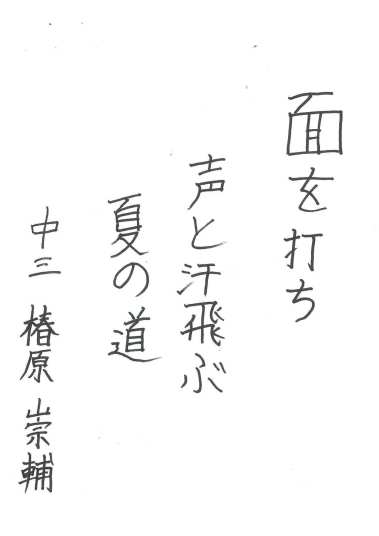 面を打ち
声と汗飛ぶ
夏の道
中三 椿原 崇輔